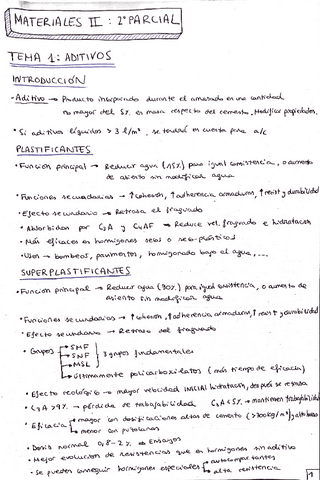 MATERIALES II : 2º PARCIAL
TEMA 1: ADITIVOS
INTRODUCCIÓN
- Aditivo → Producto incorporado durante el amasado en una cantidad
no mayor del 5% en masa respecto del cemento. Modificar propiedades.
* Si aditivos líquidos > 3 l/m³, se tendrá en cuenta para a/c
PLASTIFICANTES
• Función principal → Reducir agua (15%) para igual consistencia, o aumento
de asiento sin modificar agua
• Funciones secundarias → ↑cohesión, ↑adherencia armaduras, ↑resist y durabilidad
• Efecto secundario → Retrasa el fraguado
• Absorbidos por C3A y C4AF → Reduce vel. fraguado e hidratación
• Más eficaces en hormigones secos o seco-plásticos
• Usos → bombeos, pavimentos, hormigonado bajo el agua,...
SUPERPLASTIFICANTES
• Función principal → Reducir agua (30%) para igual consistencia, o aumento de
asiento sin modificar agua
• Funciones secundarias → ↑cohesión, ↑adherencia armaduras, ↑resist y durabilidad
• Efecto secundario → Retraso del fraguado
• Grupos → SMF
→ SNF 3 grupos fundamentales
→ MSL
→ Últimamente policarboxilatos (más tiempo de eficacia)
• Efecto reológico → mayor velocidad INICIAL hidratación, después se retrasa
• C3A > 9% → pérdida de trabajabilidad. C3A < 5% → mantienen trabajabilidad
• Eficacia → mayor con dosificaciones altas de cemento (>300kg/m³)
→ menor con puzolanas
• Dosis normal 0,8-2% → Ensayos
• Mejor evolución de resistencias que en hormigones sin aditivo
• Se pueden conseguir hormigones especiales → autocompactantes
→ alta resistencia
1